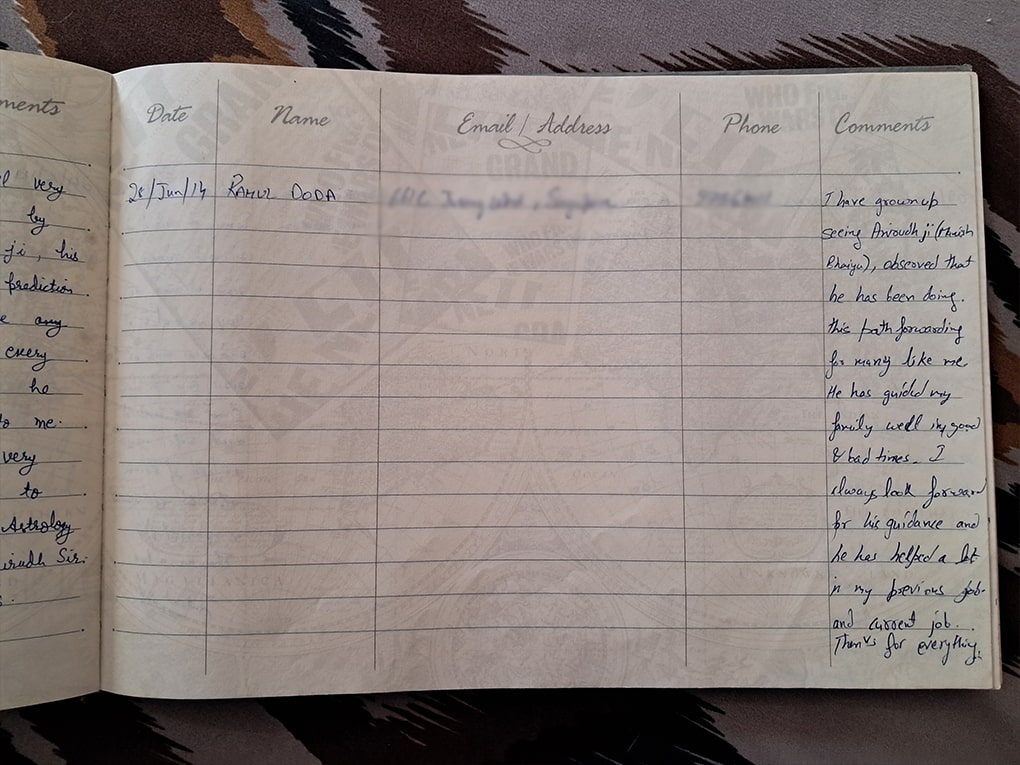 ments
very
by
ji, his
prediction
any
every
he
to me.
very
to
Astrology
irudh Sir.
Date Name Email / Address Phone Comments
RAHUL DODA
I have grown up
seeing Anirudh ji (
Bhaiya), observed that
he has been doing.
this path forwarding
for many like me.
He has guided my
family well in good
& bad times. I
always look forward
for his guidance and
he has helped a lot
in my previous job.
and current job.
Thanks for everything.